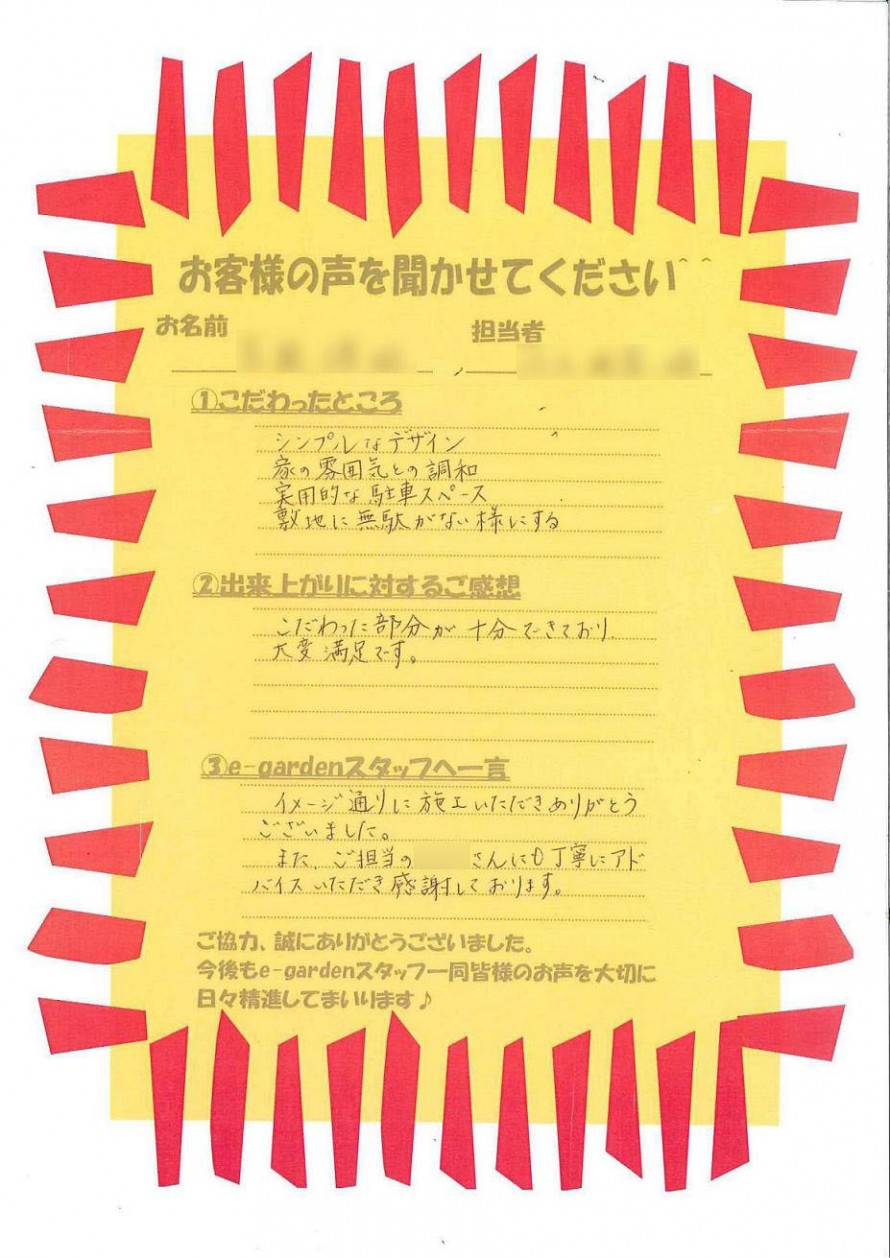 お客様の声を聞かせてください^ ^
お名前
担当者
①こだわったところ
シンプルなデザイン
家の雰囲気との調和
実用的な駐車スペース
敷地に無駄がない様にする
②出来上がりに対するご感想
こだわった部分が十分できており、
大変満足です。
③e-gardenスタッフへ一言
イメージ通りに施工いただきありがとう
ございました。
また、ご担当の さんにも丁寧にアド
バイスいただき感謝しております。
ご協力、誠にありがとうございました。
今後もe-gardenスタッフ一同皆様のお声を大切に
日々精進してまいります♪